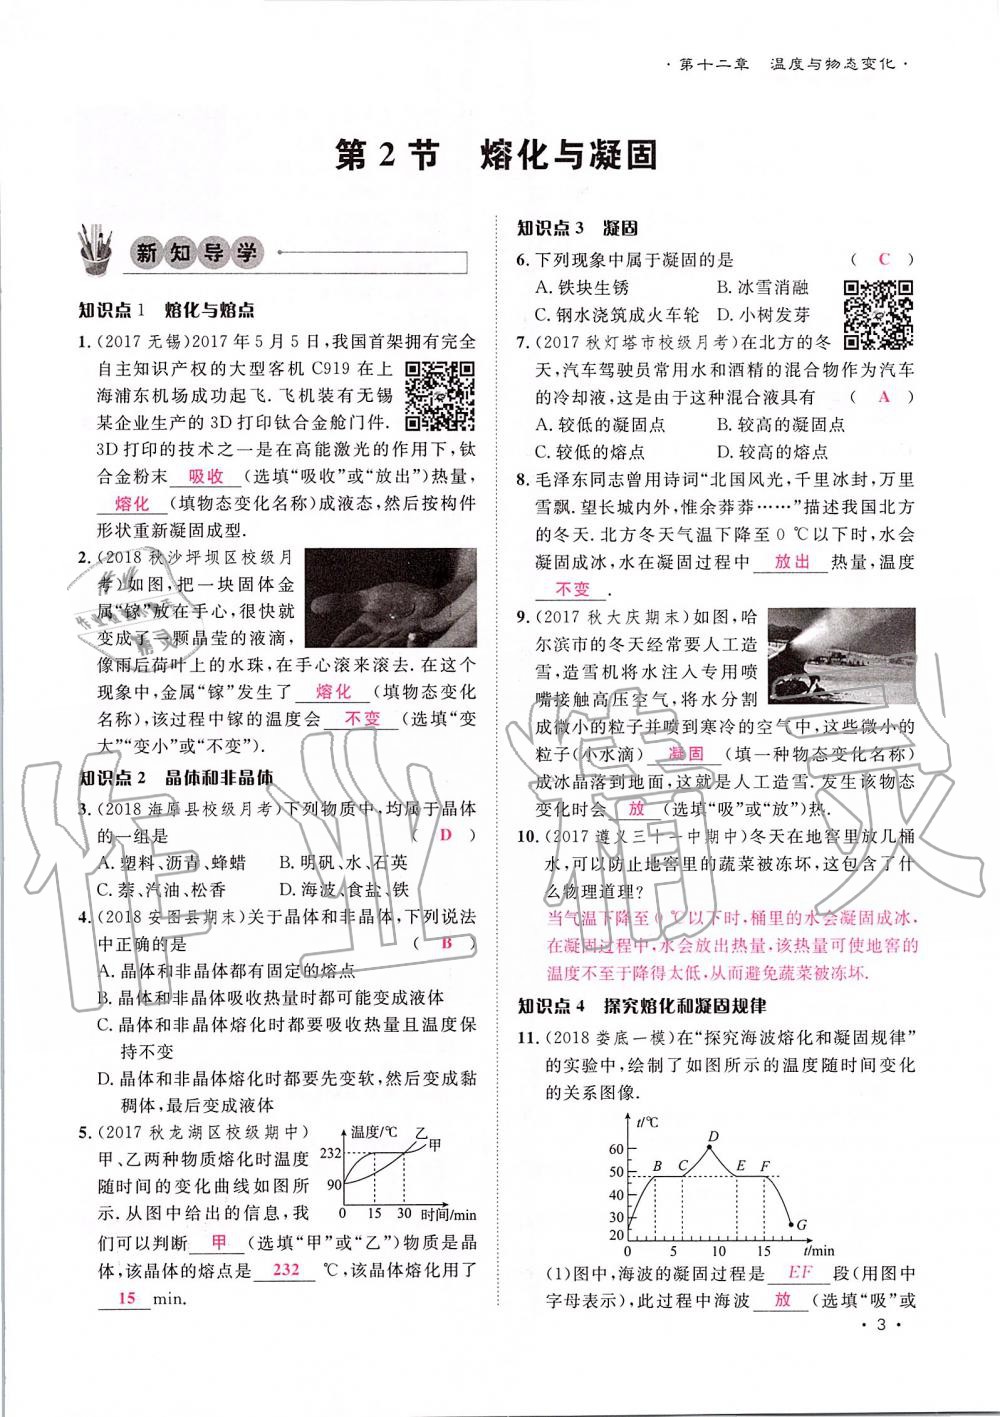 ·第十二章 温度与物态变化·
第2节 熔化与凝固
新知导学
知识点1 熔化与熔点
1.(2017无锡)2017年5月5日,我国首架拥有完全
自主知识产权的大型客机C919在上
海浦东机场成功起飞.飞机装有无锡
某企业生产的3D打印钛合金舱门件.
3D打印的技术之一是在高能激光的作用下,钛
合金粉末 吸收 (选填“吸收”或“放出”)热量,
熔化 (填物态变化名称)成液态,然后按构件
形状重新凝固成型.
2.(2018秋沙坪坝区校级月
考)如图,把一块固体金
属“镓”放在手心,很快就
变成了一颗晶莹的液滴,
像雨后荷叶上的水珠,在手心滚来滚去.在这个
现象中,金属“镓”发生了 熔化 (填物态变化
名称),该过程中镓的温度会 不变 (选填“变
大”“变小”或“不变”).
知识点2 晶体和非晶体
3.(2018海原县校级月考)下列物质中,均属于晶体
的一组是 ( D )
A.塑料、沥青、蜂蜡 B.明矾、水、石英
C.萘、汽油、松香 D.海波、食盐、铁
4.(2018安图县期末)关于晶体和非晶体,下列说法
中正确的是 ( B )
A.晶体和非晶体都有固定的熔点
B.晶体和非晶体吸收热量时都可能变成液体
C.晶体和非晶体熔化时都要吸收热量且温度保
持不变
D.晶体和非晶体熔化时都要先变软,然后变成黏
稠体,最后变成液体
5.(2017秋龙湖区校级期中)
甲、乙两种物质熔化时温度
随时间的变化曲线如图所
示.从图中给出的信息,我
们可以判断 甲 (选填“甲”或“乙”)物质是晶
体,该晶体的熔点是 232 ℃,该晶体熔化用了
15 min.
温度/℃ 乙
甲
232
90
0 15 30 时间/min
知识点3 凝固
6.下列现象中属于凝固的是 ( C )
A.铁块生锈 B.冰雪消融
C.钢水浇筑成火车轮 D.小树发芽
7.(2017秋灯塔市校级月考)在北方的冬
天,汽车驾驶员常用水和酒精的混合物作为汽车
的冷却液,这是由于这种混合液具有 ( A )
A.较低的凝固点 B.较高的凝固点
C.较低的熔点 D.较高的熔点
8.毛泽东同志曾用诗词“北国风光,千里冰封,万里
雪飘.望长城内外,惟余莽莽……”描述我国北方
的冬天.北方冬天气温下降至0 ℃以下时,水会
凝固成冰,水在凝固过程中 放出 热量,温度
不变 .
9.(2017秋大庆期末)如图,哈
尔滨市的冬天经常要人工造
雪,造雪机将水注入专用喷
嘴接触高压空气,将水分割
成微小的粒子并喷到寒冷的空气中,这些微小的
粒子(小水滴) 凝固 (填一种物态变化名称)
成冰晶落到地面,这就是人工造雪.发生该物态
变化时会 放 (选填“吸”或“放”)热.
10.(2017遵义三十一中期中)冬天在地窖里放几桶
水,可以防止地窖里的蔬菜被冻坏,这包含了什
么物理道理?
当气温下降至0 ℃以下时,桶里的水会凝固成冰,
在凝固过程中,水会放出热量,该热量可使地窖的
温度不至于降得太低,从而避免蔬菜被冻坏.
知识点4 探究熔化和凝固规律
11.(2018娄底一模)在“探究海波熔化和凝固规律”
的实验中,绘制了如图所示的温度随时间变化
的关系图像.
t/℃
60
50
40
30
20
B C D E F G
0 5 10 15 t/min
(1)图中,海波的凝固过程是 EF 段(用图中
字母表示),此过程中海波 放 (选填“吸”或
·3·
作业精灵